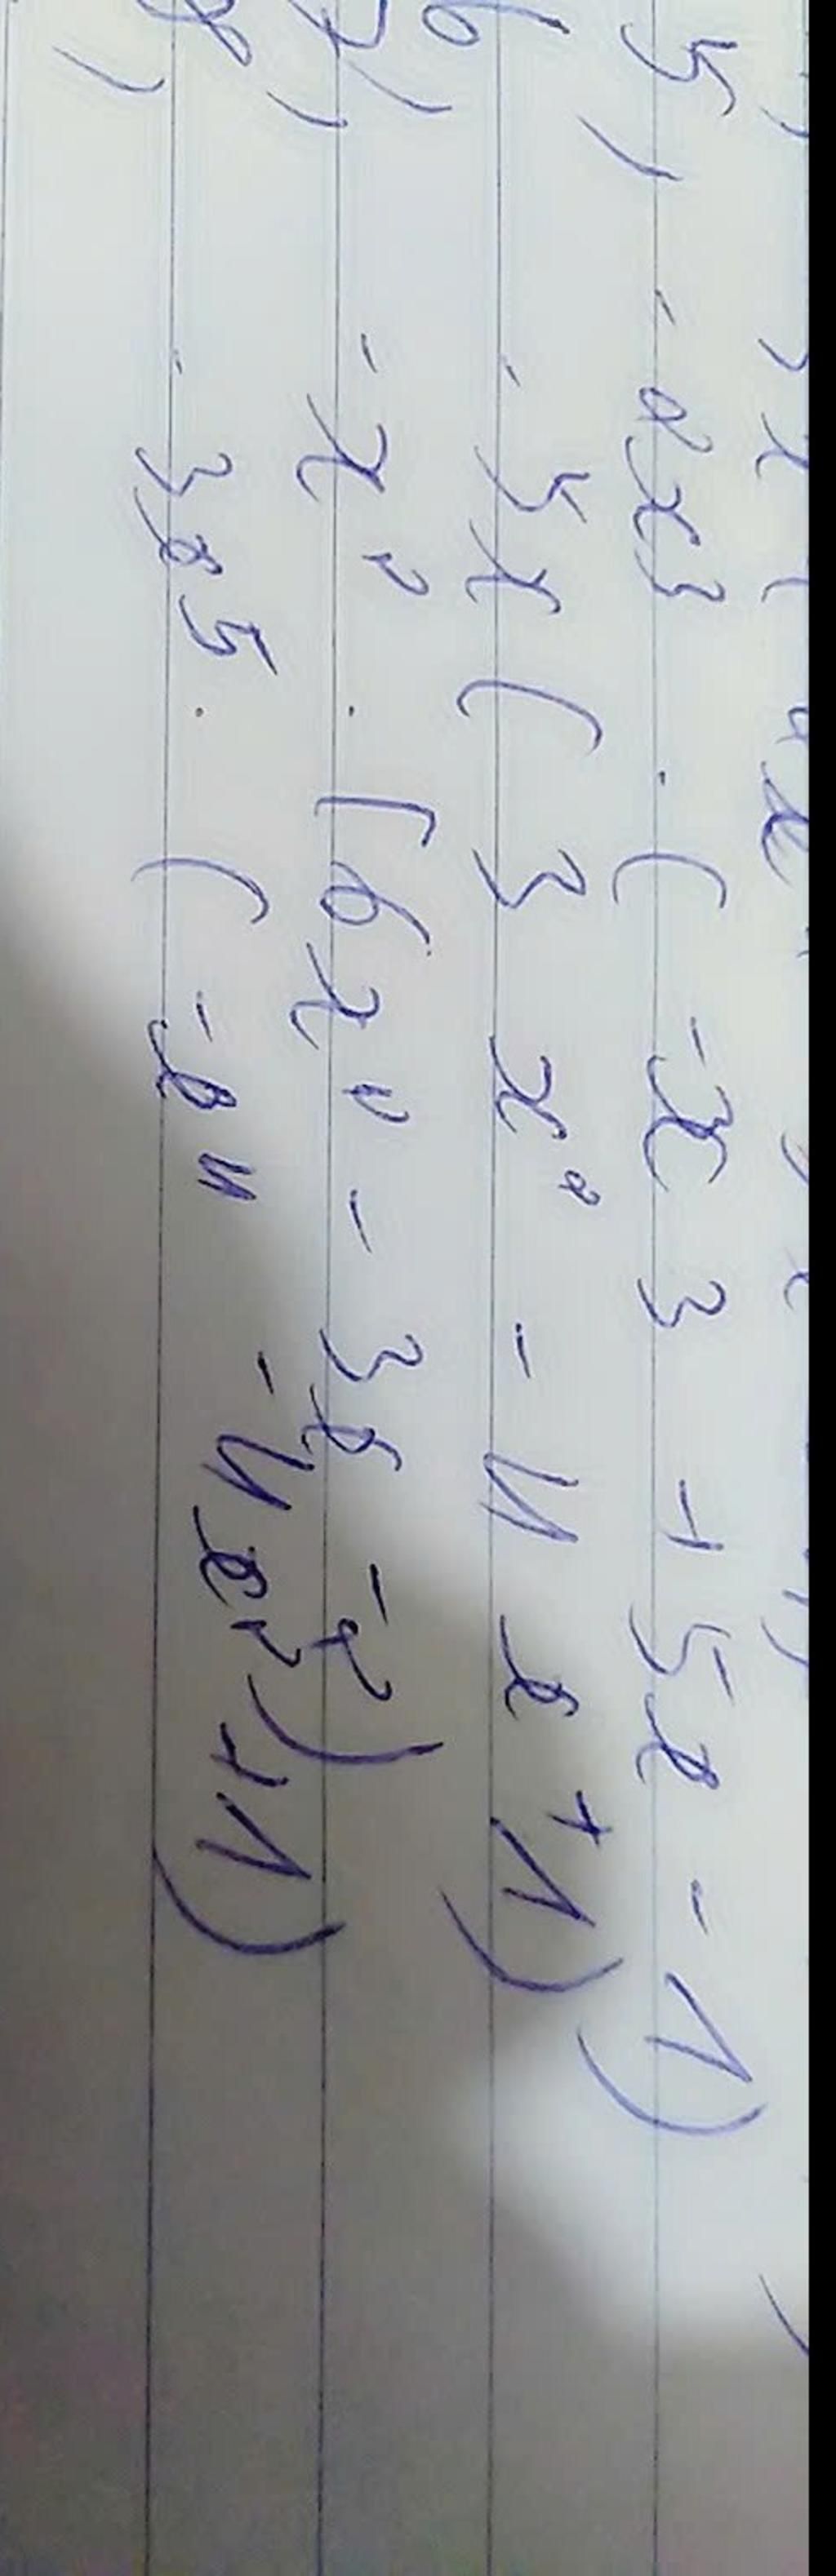 5) -2x3 . (-x3 + 5x - 1)
6) -5x(3x² - 4x + 1)
7) -x² . (6x⁴ - 3x - 2)
8) -3x5 . (-x4 - 4x² + 1)